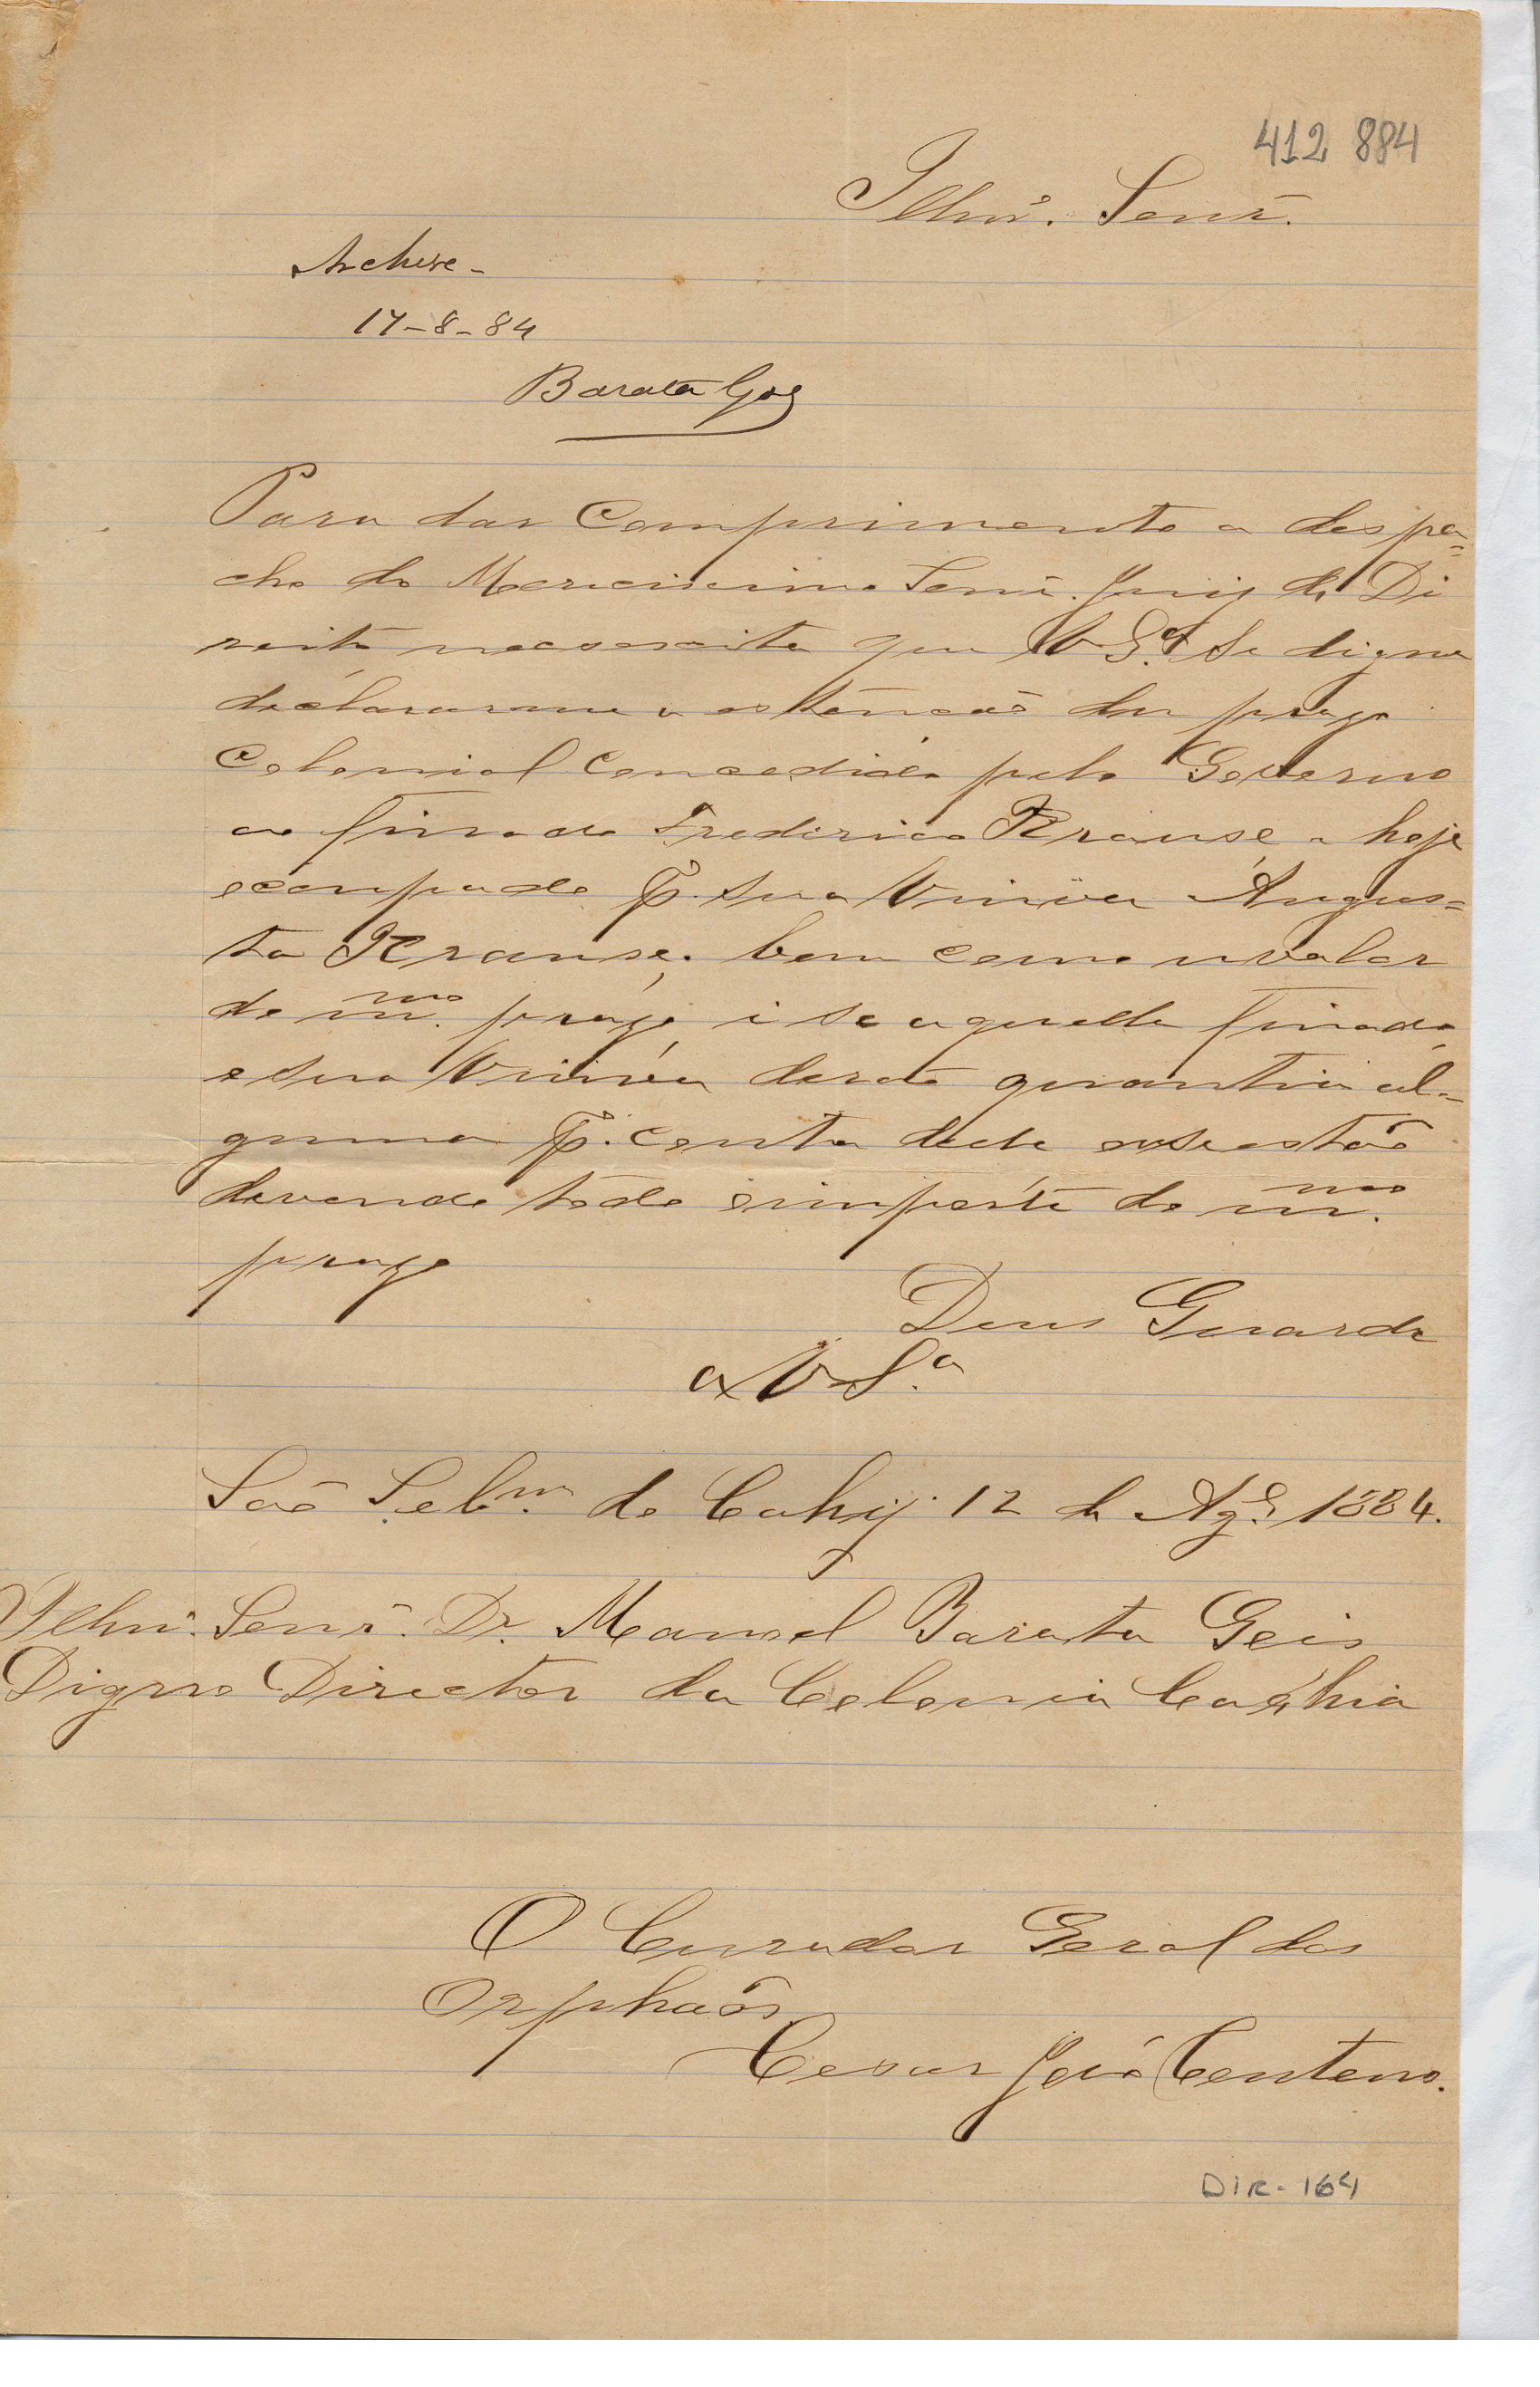 412 884
Illmº. Senr.
Archive-
17-8-84
Barata Goes
Para dar Comprimento a despa=
cho do Merecisimo Senr. Juiz de Di
reito necesscita que V Sª. Se digne
declararme a estenção du prazo
Colonial Concedido pelo Governo
ao finado Frederico Krause e hoje
ocupado p. sua Viuva Augus=
ta Krause, bem como o valor
do mmo. prazo, i se aquelle finado,
e sua Viuva derão quantia al=
guma p. conta dele ou se estão
devendo todo o importe do mmo.
prazo
Deus Guarde
a V Sª
São Sebm. do Cahy 12 de Agº. 1884.
Illmº. Senr. Dr. Manoel Barata Geis
Digno Director da Colonia Caxhia
O Curador Geral dos
Orphaõs
Cesar José Centeno.
DIR-164